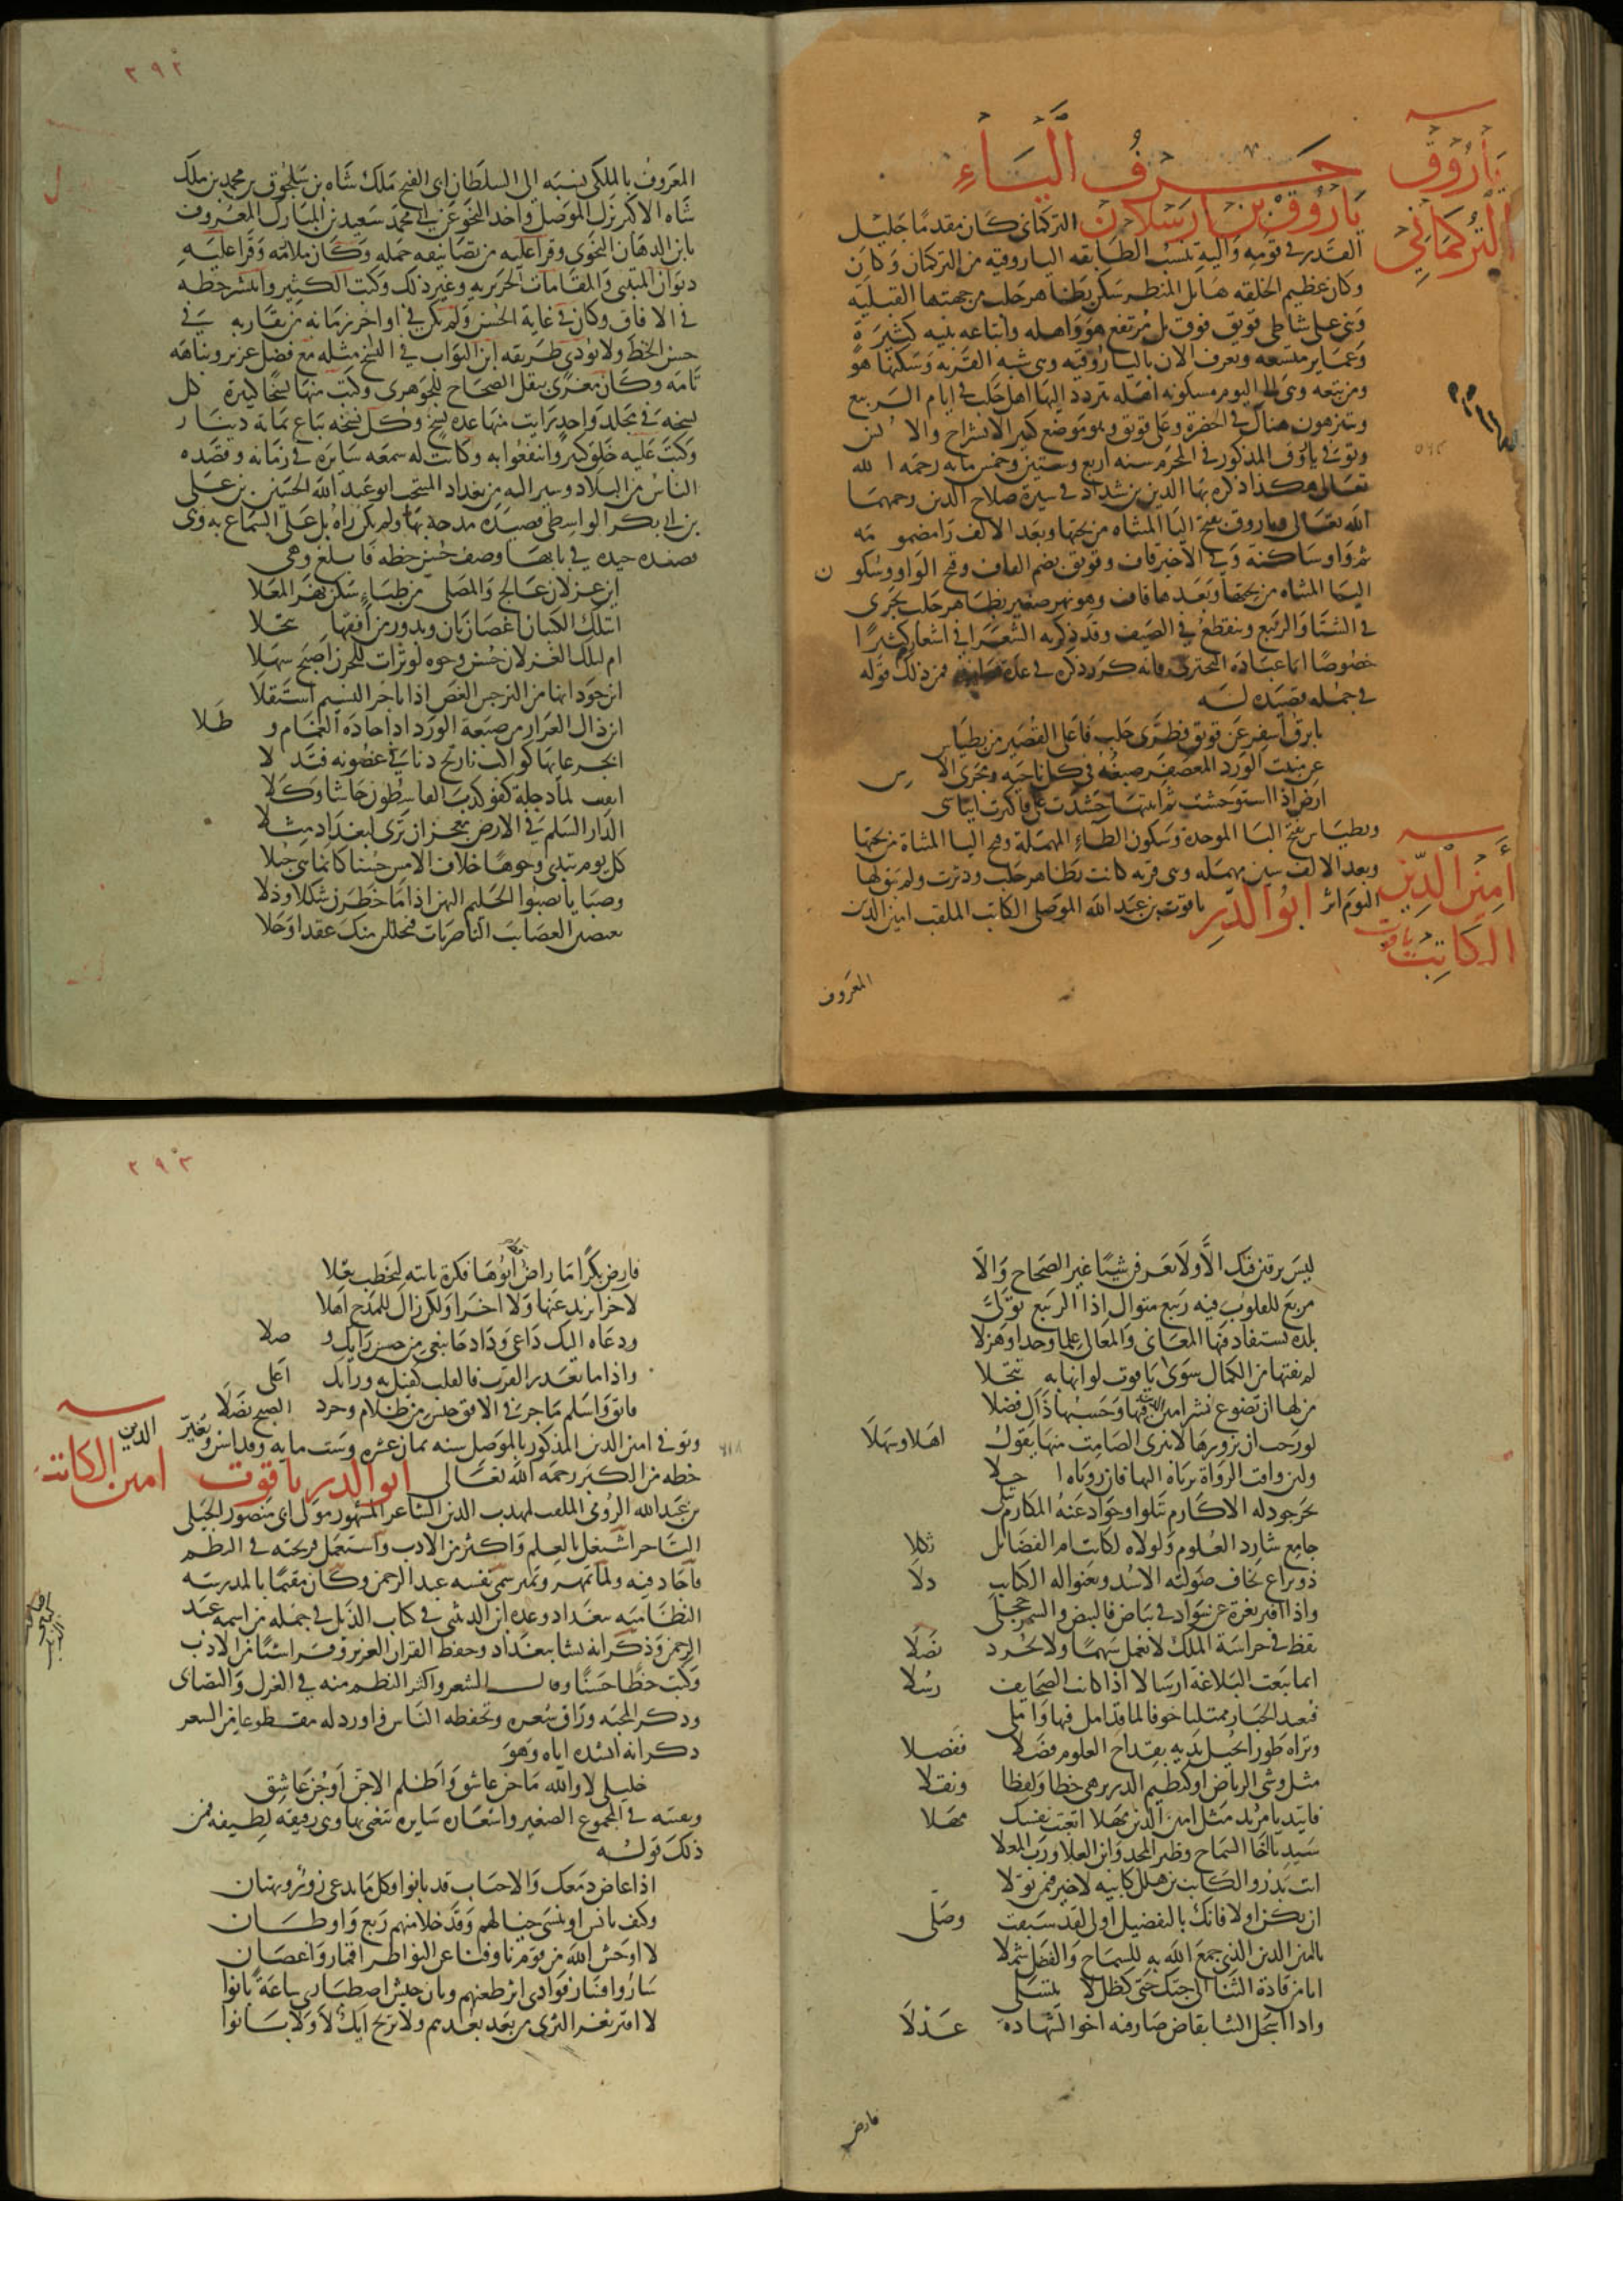 حرف الياء
ياروق التركماني
ياروق بن ارسلان التركمانى كان مقدما جليل
القدر فى قومه واليه تنسب الطائفه الياروقيه من التركمان وكان
وكان عظيم الخلقه هائل المنظر سكن بظاهر حلب من جهتها القبليه
وبنى على شاطى قويق فوق تل مرتفع هو واهله واتباعه ابنيه كثيرة
وعماير متسعه ويعرف الان بالياروقيه وهى شبه القريه وسكنها هو
ومن تبعه وهى الى اليوم مسكونه اهله يتردد اليها اهل حلب فى ايام الربيع
ويتنزهون هناك فى الخضرة وعلى قويق وهو موضع كثير الانشراح والانس
وتوفى ياروق المذكور فى المحرم سنه اربع وستين وخمس مايه رحمه الله
تعالى هكذا ذكره بها الدين بن شداد فى سيرة صلاح الدين رحمهما
الله تعالى وياروق بفتح اليا المثناه من تحتها وبعد الالف را مضمومه
ثم واو ساكنة وفى الاخير قاف وقويق بضم القاف وفتح الواو وسكون
اليا المثناه من تحتها وبعدها قاف وهو نهر صغير بظاهر حلب يجرى
فى الشتا والربيع وينقطع فى الصيف وقد ذكرته الشعرا فى اشعارهم كثيرا
خصوصا ابا عباده البحترى فانه كرر ذكره فى عدة فمن ذلك قوله
فى جمله قصيده له
يا برق اسفر عن قويق فطرتى حلب فاعلى القصير من بطياس
عن منبت الورد المعصفر صبغه فى كل ناحيه ومجرى الاس
ارض اذا استوحشت ثم اتيتها حشدت على فاكثرت ايناسى
وبطياس بفتح البا الموحدة وسكون الطاء المهملة وفتح اليا المثناة من تحتها
وبعد الالف سين مهمله وهى قريه كانت بظاهر حلب ودثرت ولم يبق لها
امين الدين ياقوت الكاتب
اليوم اثر ابو الدر ياقوت بن عبد الله الموصلى الكاتب الملقب امين الدين
المعروف
٢٩٢
المعروف بالملكى نسبه الى السلطان ابى الفتح ملك شاه بن سلجوق بن محمد بن ملك
شاه الاكبر نزل الموصل واخذ النحو عن ابى محمد سعيد بن المبارك المعروف
بابن الدهان النحوى وقرا عليه من تصانيفه جمله وكان ملازمه وقرا عليه
ديوان المتنبى والمقامات الحريريه وغير ذلك وكتب الكثير وانتشر خطه
فى الافاق وكان فى غاية الحسن ولم يكن فى اواخر زمانه من يقاربه فى
حسن الخط ولا يودى طريقه ابن البواب فى النسخ مثله مع فضل غزير ونباهه
تامه وكان مغرى بنقل الصحاح للجوهرى وكتب منها نسخا كثيرة كل
نسخه فى مجلد واحد رايت منها عده نسخ وكل نسخه تباع بمائة دينار
وكتب عليه خلق كثير وانتفعوا به وكانت له سمعه سايره فى زمانه وقصده
الناس من البلاد وسير اليه من بغداد النجيب ابو عبد الله الحسين بن على
بن ابى بكر الواسطى قصيده مدحه بها ولم يكن راه بل على السماع به وهى
قصيده جيده فى بابها وصف حسن خطه فابلغ وهى
اين غزلان عالج والمصلى من ظباء سكن نهر المعلا
ابتلك الكثبان اغصان بان وبدور من افقها تتجلا
ام لتلك الغزلان حسن وجوه لو تراث للحزن اصبح سهلا
اين جود انها من النرجس الغض اذا باخر النسيم استقلا
اين ذاك العرار من صبغة الورد اذا جاده الغمام وطلا
الدار السلم فى الارض معجز ان ترى لبغداد مثلا
كل يوم تبدى وجوها خلاف الامس حسنا كانما هى حبلا
وصبايا يصبو الحليم اليهن اذا ما خطرن شكلا ودلا
ليس يرقبن فيك الا ولا يعرفن شيئا غير الصحاح والا
مربع للقلوب فيه ربيع متوال اذا الربيع تولى
بلده تستفاد فيها المعانى والمعالى علما وجدا وهزلا
لم يفتها من الكمال سوى ياقوت لو انها به تتحلا
من لها ان تضوع نشر امين الدين فيها وحسبها ذاك فضلا
لو رحب ان يزورها لانبرى الصامت منها يقول اهلا وسهلا
بحر جود له الاكارم تتلوا وجواد عنه المكارم تتلى
جامع شارد العلوم ولولاه لكانت ام الفضائل ثكلا
ذو يراع تخاف صولته الاسد وتعنوا له الكتايب دلا
واذا افتر ثغره عن سواد فى بياض فالبيض والسمر خجلى
يقظ فى حراسة الملك لا يعمل سهما ولا يجرد نصلا
انما يبعث البلاغة ارسالا اذا كانت الصحايف رسلا
فيعيد الجبار ممتليا خوفا لما قد امل فيها واملى
وتراه طورا يجيل يديه بقداح العلوم فضلا ففصلا
مثل وشى الرياض او كنظيم الدر يزهى خطا ولفظا ونقلا
فاتيد يا مريد مثل امين الدين مهلا اتعبت نفسك مهلا
سيد يا اخا السماح وظهر المجد وابن العلا ورب المعلا
انت بدر والكاتب بن هلال كابيه لا خير فى من تولا
ان يكن اولا فانك بالتفضيل اولى لقد سبقت وصلى
يا امين الدين الذى جمع الله به للسماح والفضل شملا
واذا اسجل الثنا بقاض صار فيه اخو الشهادة عذلا
فارض
٢٩٣
فارض بكرا ما راض ابوها فكرة بابنه ليخطب بعلا
لا جزا يريد عنها ولا اجرا ولكن زاك للمدح اهلا
ودعاه اليك داعى وداد جا يبغى من حسن رايك وصلا
واذا ما تعذر القرب فالقلب كفيل به وراك اعلى
فابق واسلم ما جر فى الافق جيش من ظلام وجرد الصبح نصلا
وتوفى امين الدين المذكور بالموصل سنه ثمان عشره وست مايه وقد اسن وتغير
٦١٨
خطه من الكبر رحمه الله تعالى ابو الدر ياقوت
الدين امين الكاتب
بن عبد الله الرومى الملقب مهذب الدين الشاعر المشهور مولى ابى منصور الجيلى
التاجر اشتغل بالعلم واكثر من الادب واستعمل قريحته فى النظم
فاجاد فيه ولما تمهر وتميز سمى نفسه عبد الرحمن وكان مقيما بالمدرسه
النظاميه ببغداد وعده ابن الدبيثى فى كتاب الذيل فى جمله من اسمه عبد
الرحمن وذكر انه نشا ببغداد وحفظ القران العزيز وقرا شيئا من الادب
وكتب خطا حسنا وقال الشعر واكثر النظم منه فى الغزل والتصابى
وذكر المحبه وراق شعره وتحفظه الناس واورد له مقطوعا من الشعر
ذكر انه انشده اياه وهو
خليلى لا والله ما جن غاسق واظلم الا حن او جن عاشق
وبقيته فى المجموع الصغير واشعاره سايره تتغنى بها وهى رقيقه لطيفه فمن
ذلك قوله
اذا غاض دمعك والاحباب قد بانوا فكل ما يدعى زور وبهتان
وكيف تانس او تنسى خيالهم وقد خلا منهم ربع واوطان
لا اوحش الله من قوم ناوا فناى عن النواظر اقمار واغصان
ساروا فسار فوادى اثر ظعنهم وبان جيش اصطبارى ساعة بانوا
لا افتر ثغر الثرى من بعد بعدهم ولا ترنح ايك لا ولا بانوا